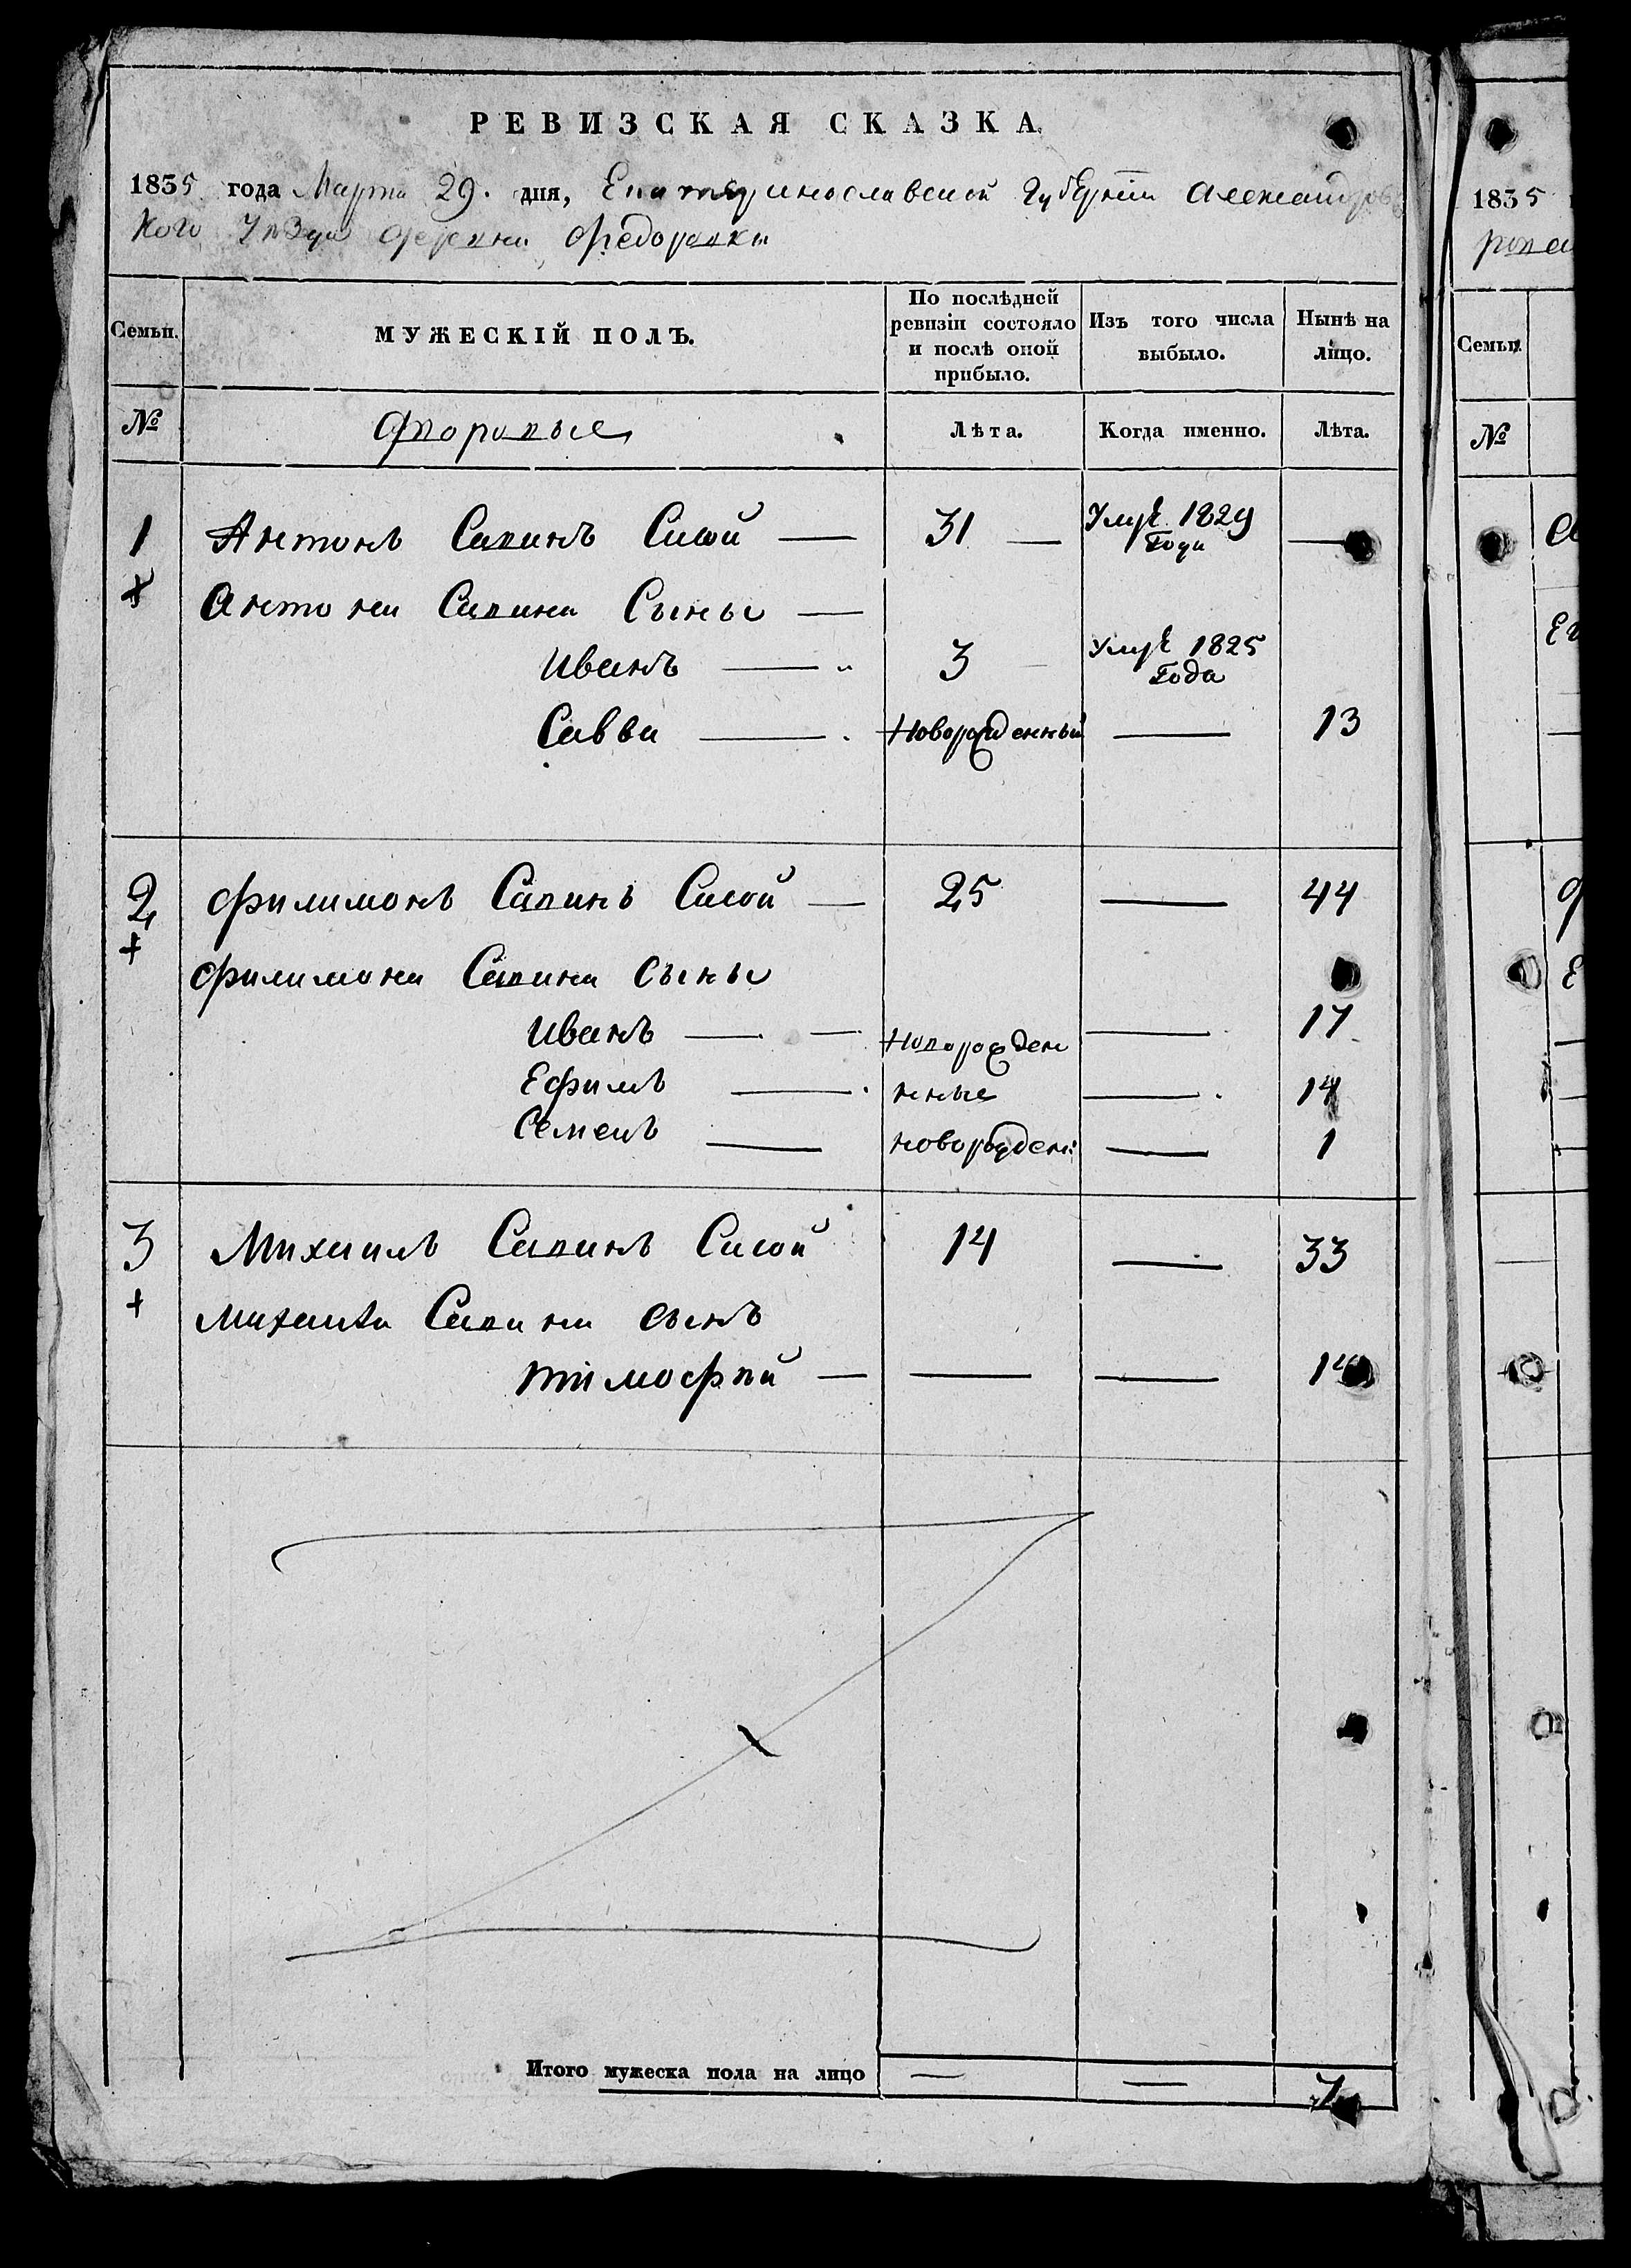 РЕВИЗСКАЯ СКАЗКА
1835 года Марта 29. дня, Екатеринославской Губерніи Александровс
кого Уѣзда деревни Федоровки
Семьи. МУЖЕСКІЙ ПОЛЪ. По послѣдней ревизіи состояло и послѣ оной прибыло. Изъ того числа выбыло. Нынѣ на лицо.
№ Дворовые Лѣта. Когда именно. Лѣта.
1 Антонъ Савинъ Сисой 31 Умре 1829 года
Антона Савина Сыны
Иванъ 3 Умре 1825 года
Савва Новорожденный 13
2 Филимонъ Савинъ Сисой 25 44
Филимона Савина Сыны
Иванъ Новорожден 17
Ефимъ нные 14
Семенъ новорожден: 1
3 Михаилъ Савинъ Сисой 14 33
Михаила Савина сынъ
Тимофѣй
Итого мужеска пола на лицо 7
1835
Семьи.
№